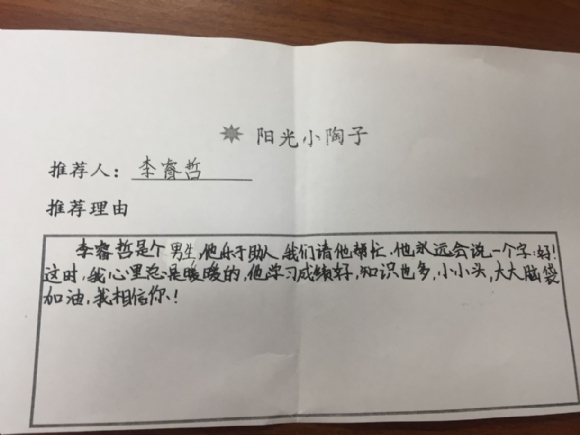 阳光小陶子
推荐人：李睿哲
推荐理由
李睿哲是个男生，他乐于助人，我们请他帮忙，他永远会说一个字：好！
这时，我心里总是暖暖的，他学习成绩好，知识也多，小小头，大大脑袋
加油，我相信你！